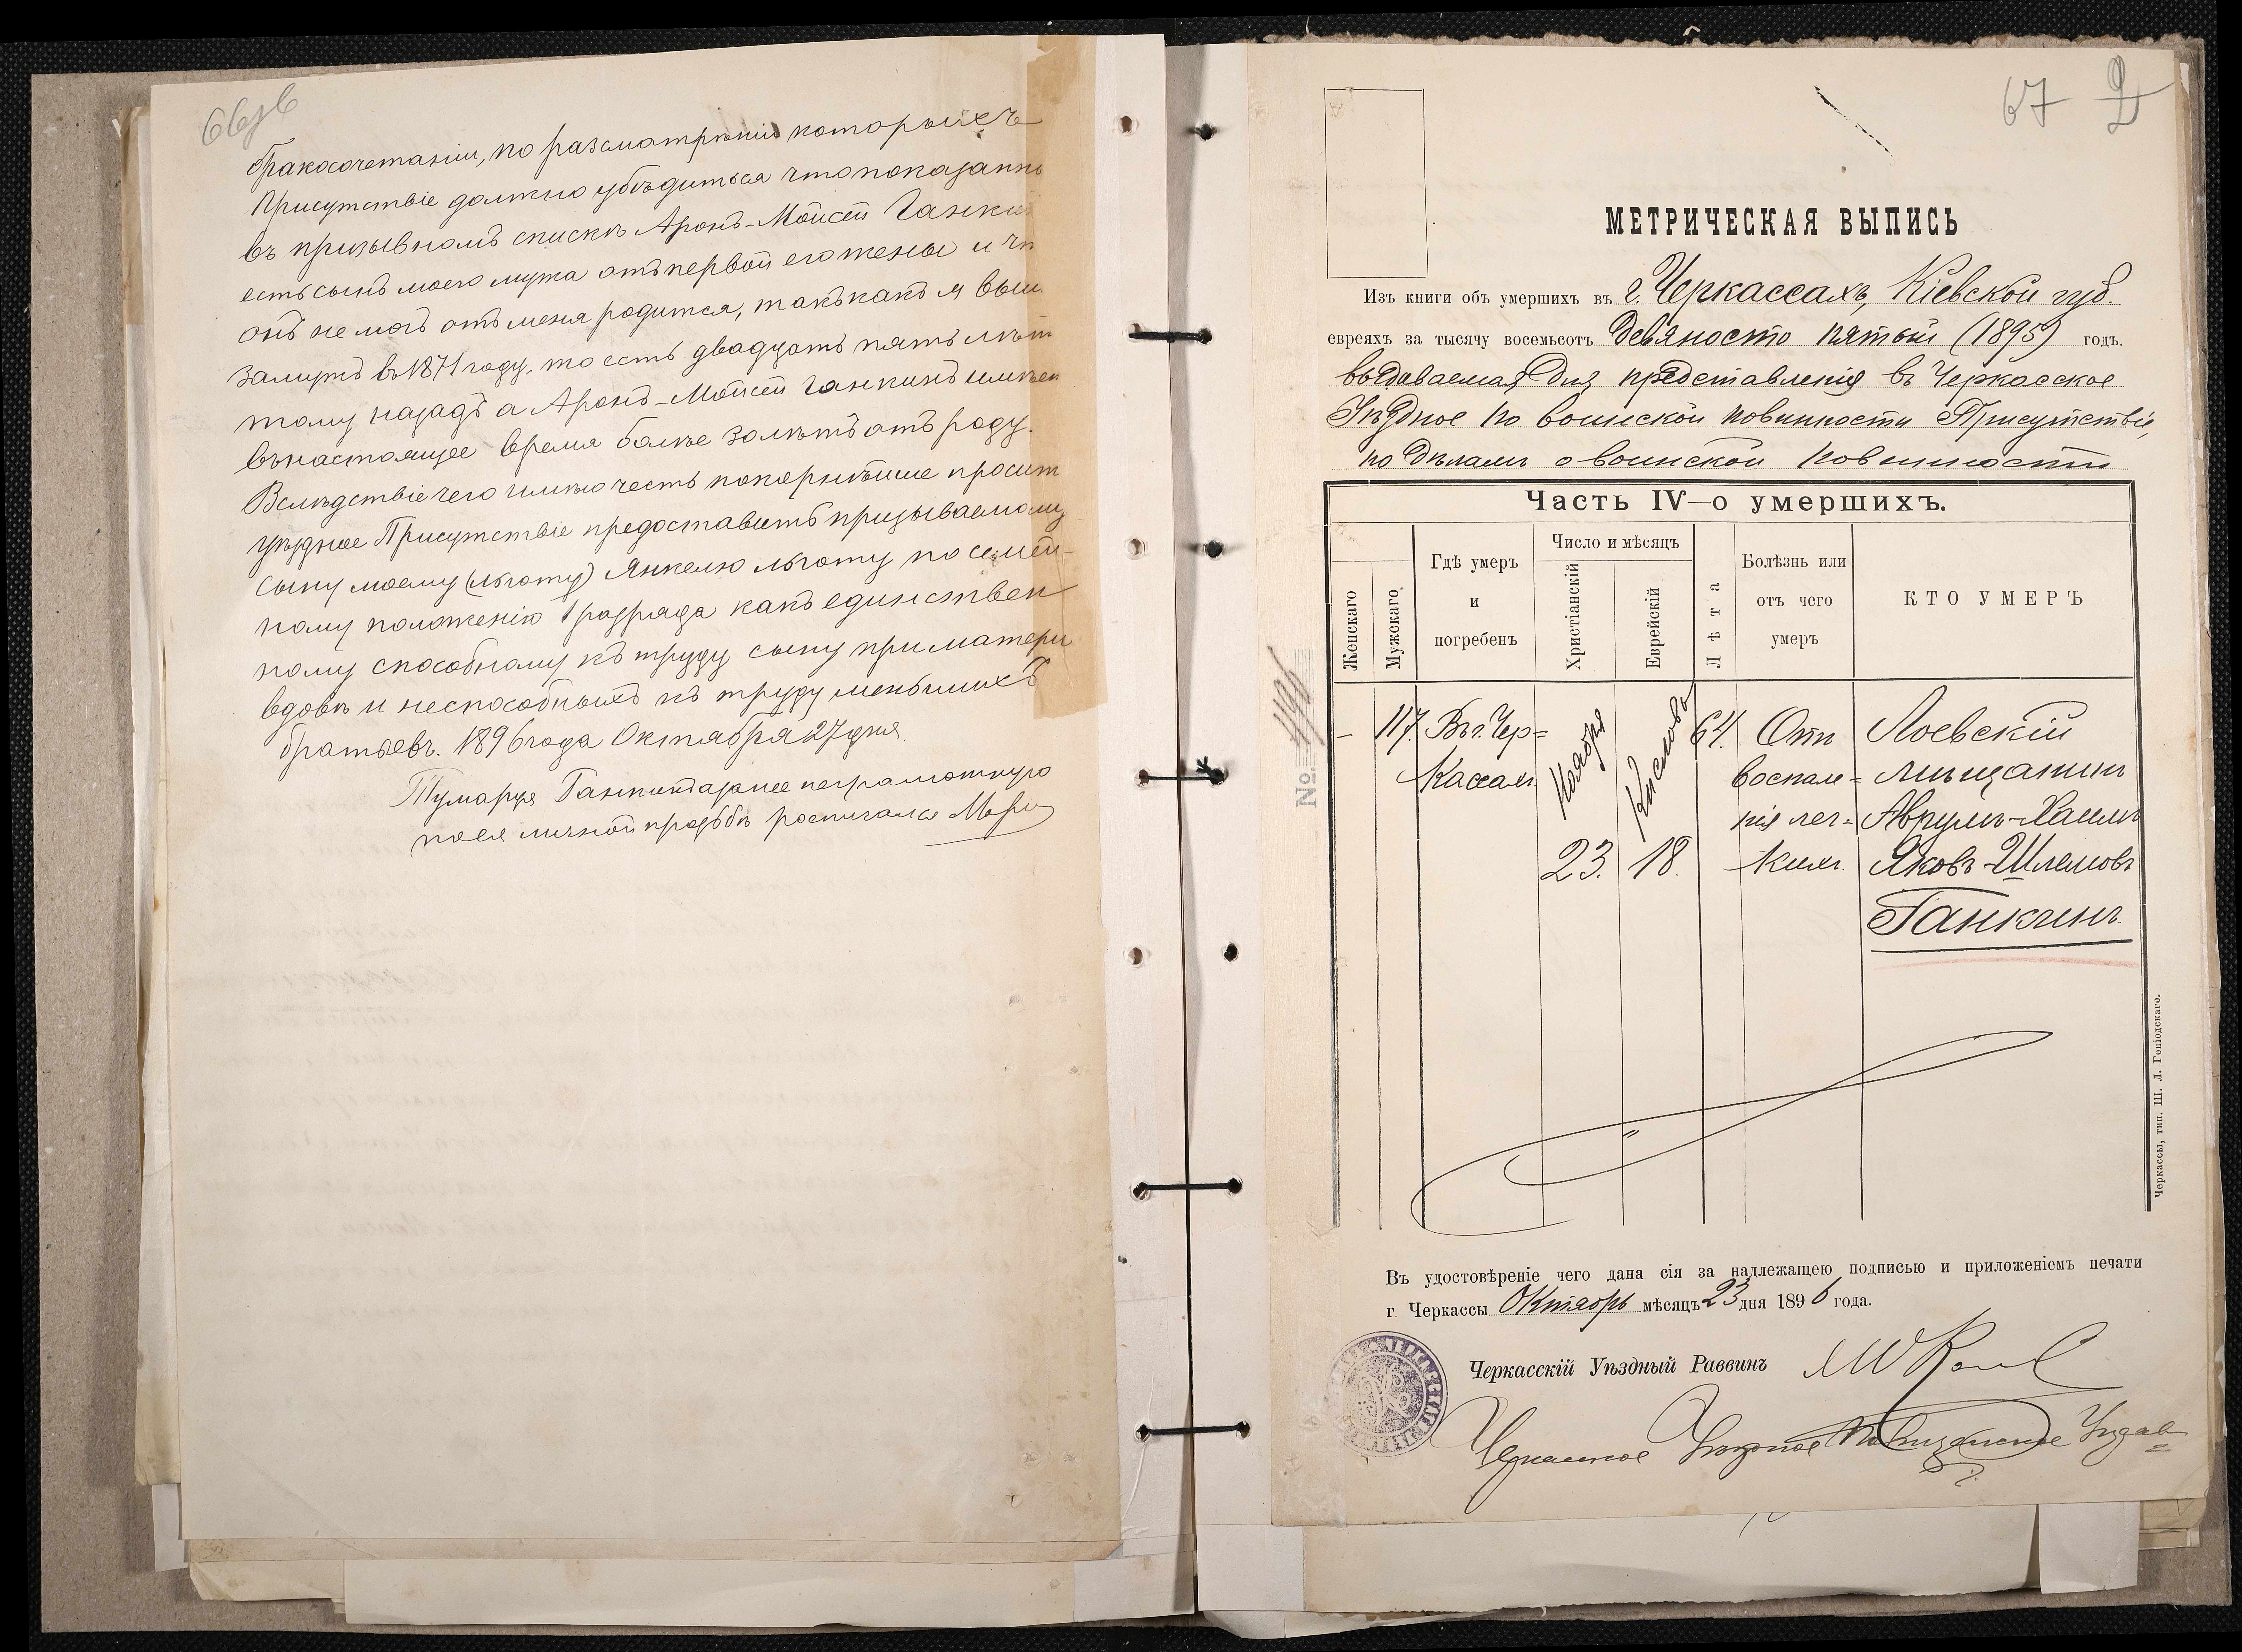 бракосочетанiи, по разсмотрѣнiю которыхъ
Присутствiе должно убѣдиться что показанно
въ призывномъ спискѣ Аронъ-Мойсей Ганки
есть сынъ моего мужа отъ первой его жены и чт
онъ не могъ отъ меня родится, такъ какъ я выш
замужъ въ 1871 году, то есть двадцать пять лѣт
тому назадъ а Аронъ-Мойсей Ганкинъ имѣет
въ настоящее время болѣе 30 лѣтъ отъ роду.
Вслѣдствiе чего имѣю честь покорнѣйше просит
уѣздное Присутствiе предоставить призываемому
сыну моему (льготу) Янкелю льготу по семей-
ному положенiю 1 разряда какъ единствен
ному способному къ труду сыну при матери
вдовѣ и неспособныхъ къ труду меньшихъ
братьевъ. 1896 года Октября 27 дня.
Ганкина за нее неграмотную
по ея личной прозьбѣ росписался
67 2
МЕТРИЧЕСКАЯ ВЫПИСЬ
Изъ книги объ умершихъ въ г. Черкассахъ, Кiевской губ.
евреяхъ за тысячу восемьсотъ девяносто пятый (1895) годъ.
выдаваемая для представленiя въ Черкасское
Уѣздное по воинской повинности Присутствiе,
по дѣламъ о воинской повинности
Часть IV—о умершихъ.
Женскаго
Мужскаго
Гдѣ умеръ и погребенъ
Число и мѣсяцъ
Христiанскiй
Еврейскiй
Лѣта
Болѣзнь или отъ чего умеръ
КТО УМЕРЪ
№.
– 117. Въ г. Чер= Ноября Кислевъ 64. Отъ Лоевскiй
кассахъ воспале= мѣщанинъ
нiя лег= Аврумъ-Хаимъ
23. 18. кихъ. Яковъ-Шлемовъ
Ганкинъ.
Черкассы, тип. Ш. Л. Гонiодскаго.
Въ удостовѣренiе чего дана сiя за надлежащею подписью и приложенiемъ печати
г. Черкассы Октябрь мѣсяцъ 23 дня 1896 года.
Черкасскiй Уѣздный Раввинъ
Черкасское Уѣздное Полицейское